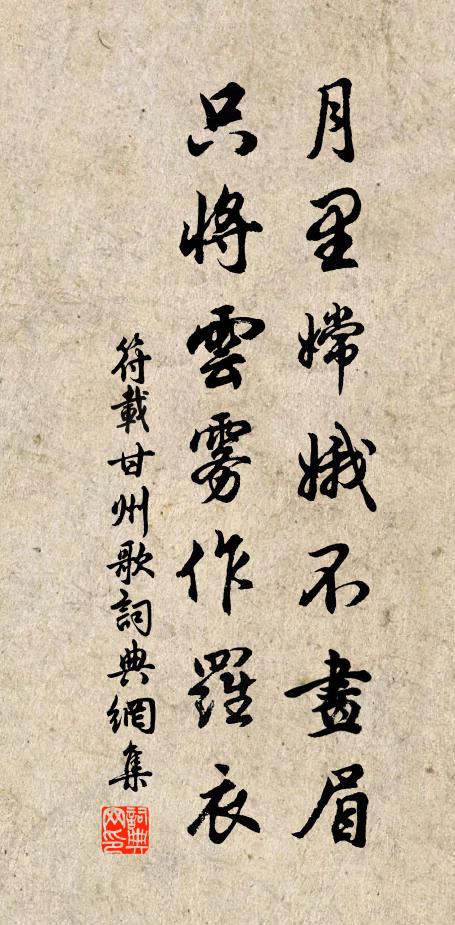 月里嫦娥不畫眉
只將雲霧作羅衣
符載甘州歌詞典網集
詞典网印